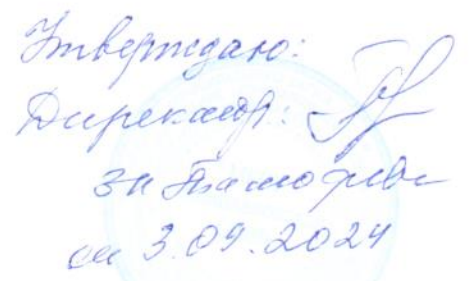 Утверждаю:
Директор:
от 3.09.2024